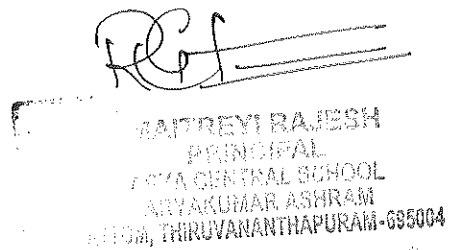 MAITREYI RAJESH
PRINCIPAL
ARYA CENTRAL SCHOOL
ARYAKUMAR ASHRAM
THIRUVANANTHAPURAM-695004